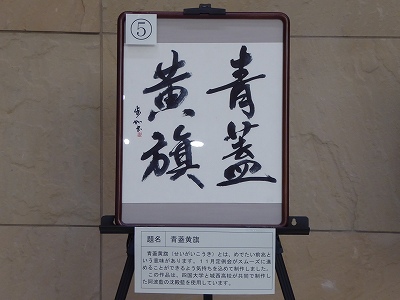 ⑤
青蓋
黄旗
題名 青蓋黄旗
青蓋黄旗（せいがいこうき）とは、めでたい前兆と
いう意味があります。11月定例会がスムーズに進
めることができるよう気持ちを込めて制作しました。
この作品は、四国大学と城西高校が共同で制作し
た阿波藍の沈殿藍を使用しています。